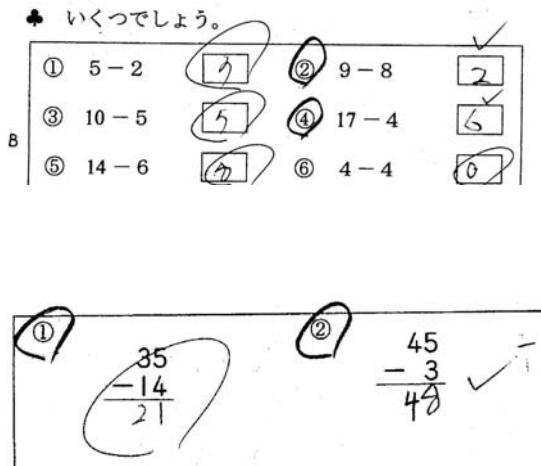 ♣ いくつでしょう。
B
① 5－2 3 ② 9－8 2
③ 10－5 5 ④ 17－4 6
⑤ 14－6 8 ⑥ 4－4 0
① ②
35 45
－14 － 3
21 48